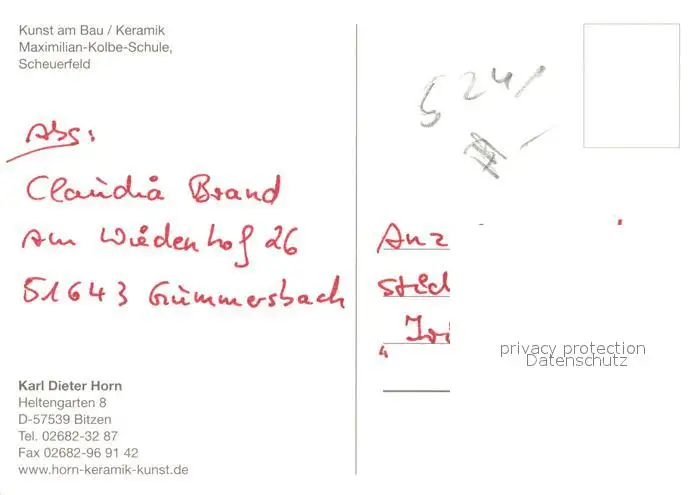 Kunst am Bau / Keramik
Maximilian-Kolbe-Schule,
Scheuerfeld
524/
Abs:
Claudia Brand
Am Wiedenhof 26
51643 Gummersbach
Anz
privacy protection
Datenschutz
Karl Dieter Horn
Heltengarten 8
D-57539 Bitzen
Tel. 02682-32 87
Fax 02682-96 91 42
www.horn-keramik-kunst.de